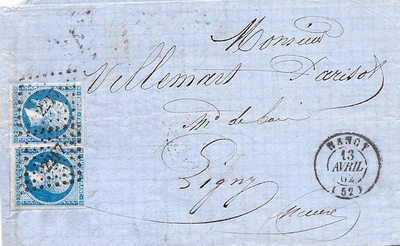 Monsieur
Villemart Parisot
Md de
Ligny
Meuse
NANCY
13
AVRIL
62
(52)